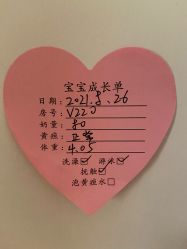 宝宝成长单
日期：2021.8.26
房号：V220
奶量：30
黄疸：正常
体重：4.05
洗澡☑ 游泳☑
抚触☑
泡黄疸水☐